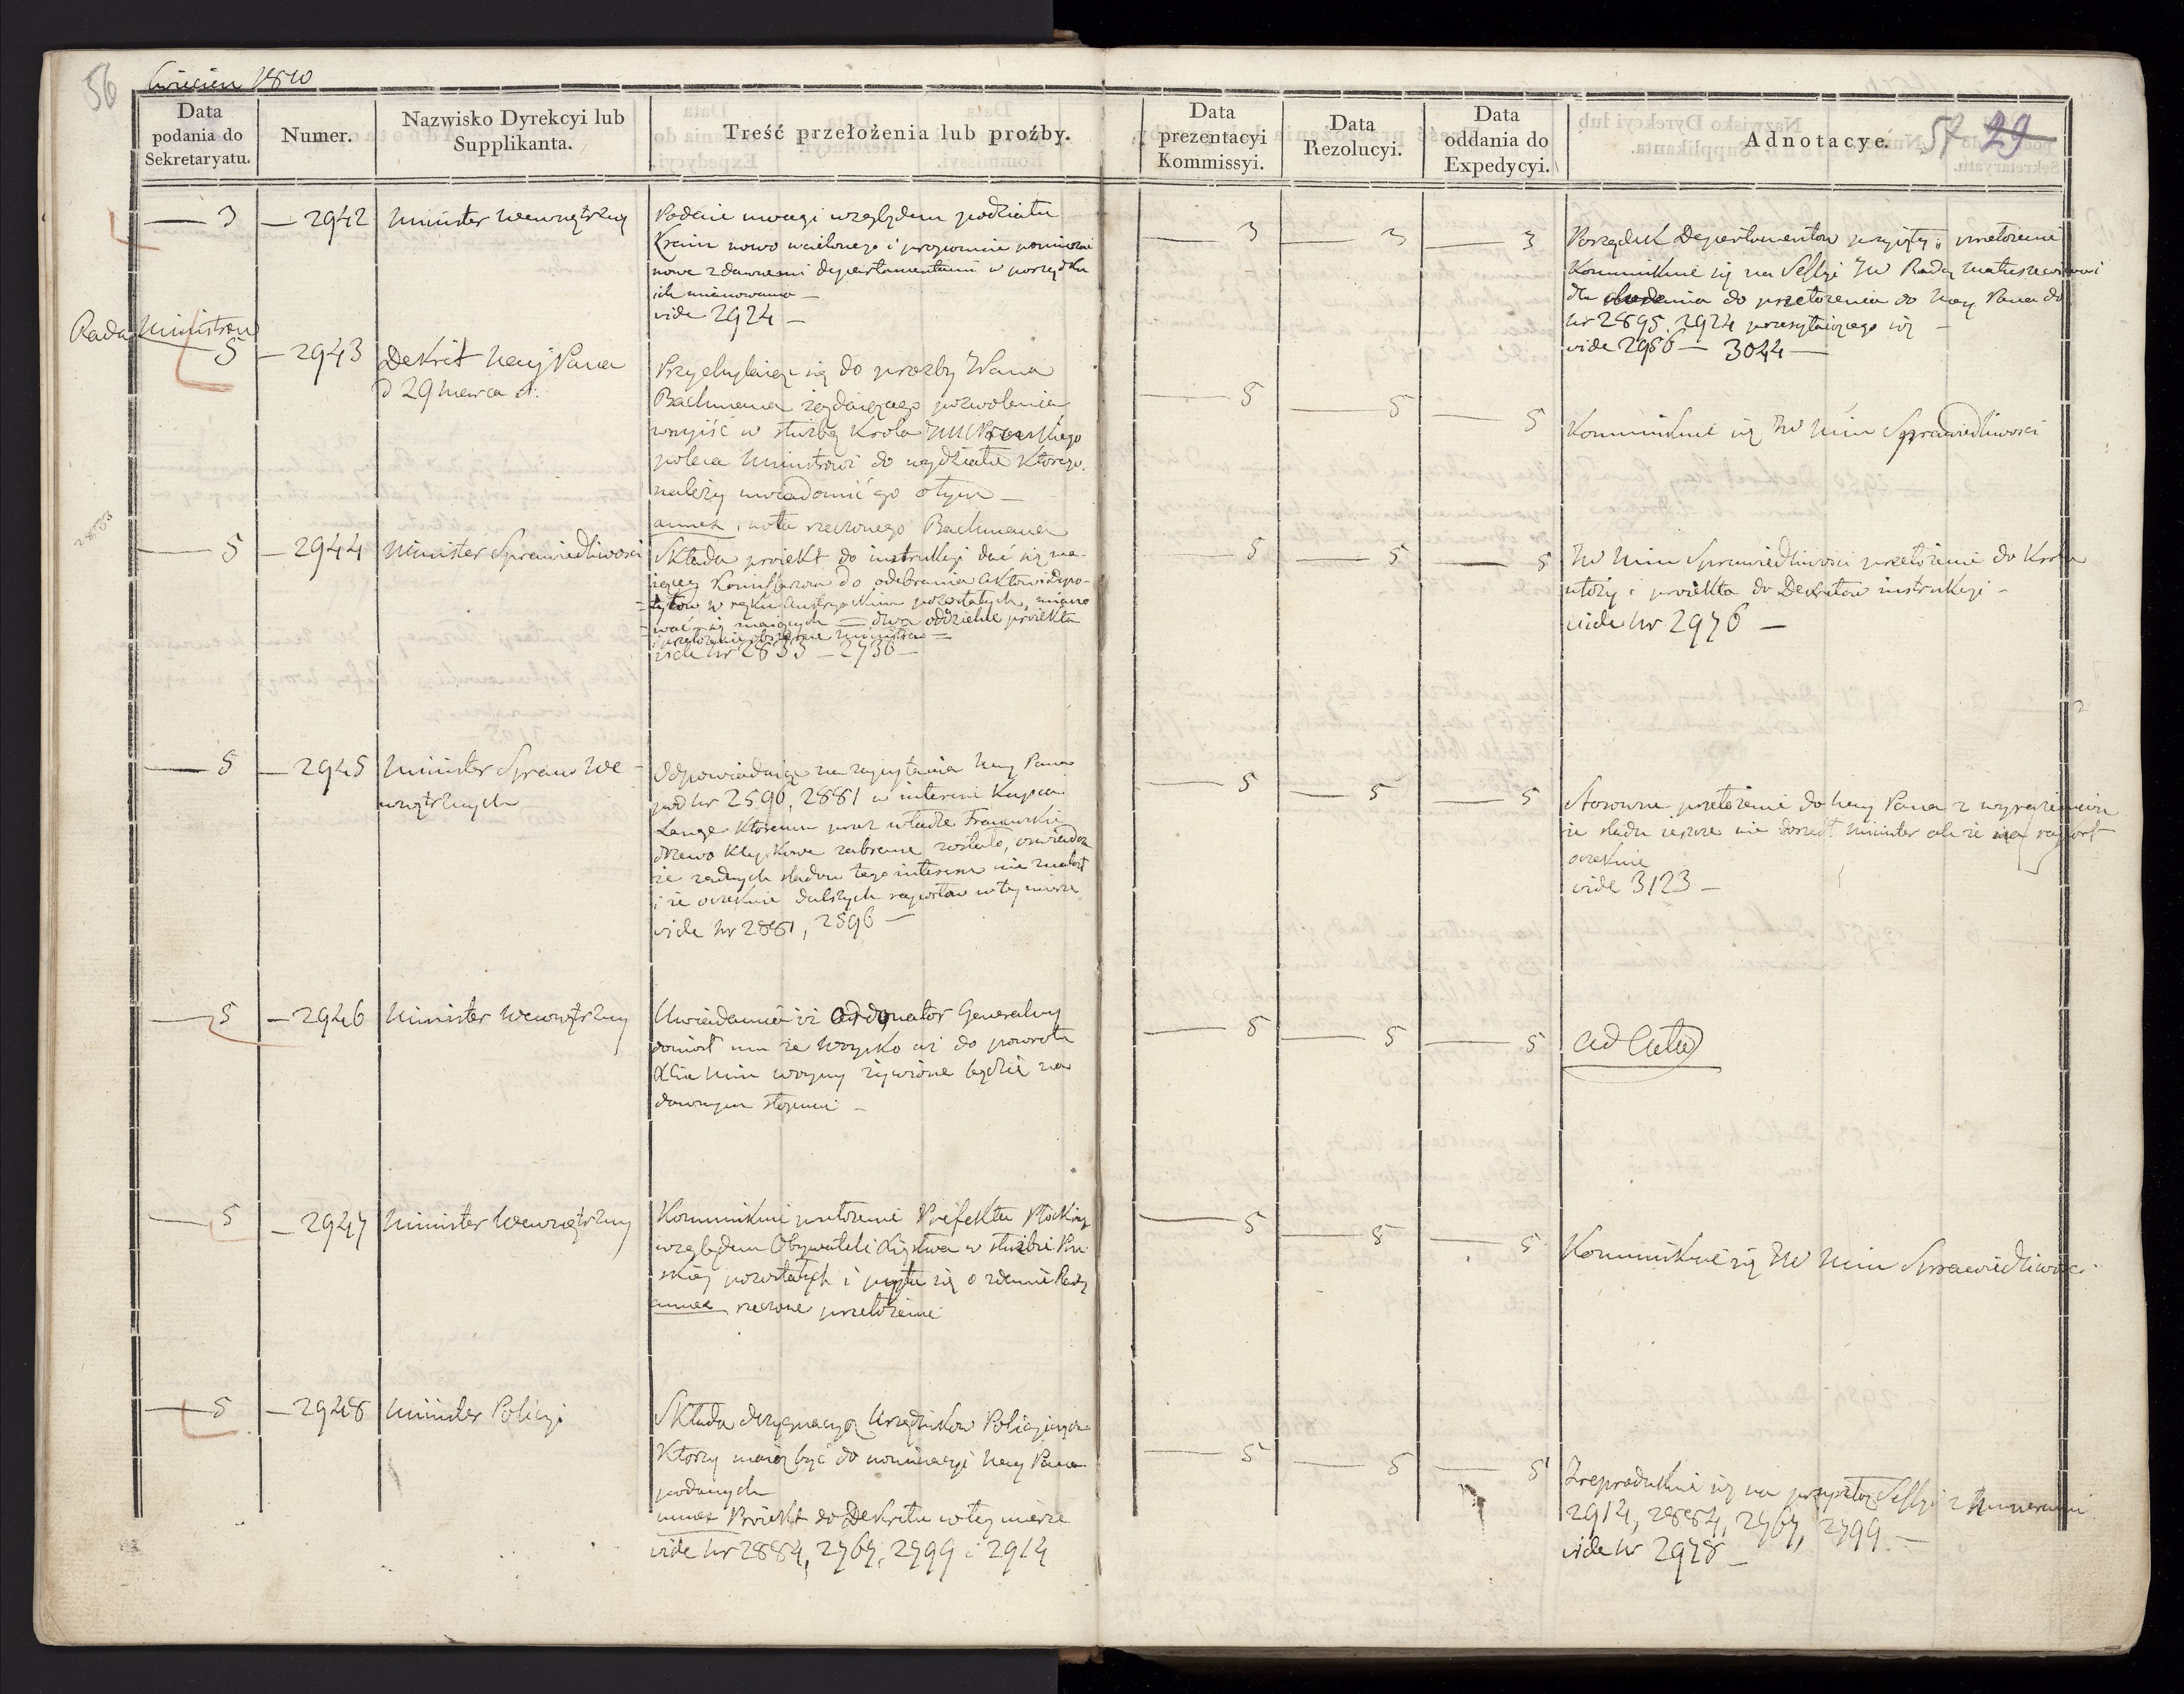 56
Kwiecien 1810
Data podania do Sekretaryatu.
Numer.
Nazwisko Dyrekcyi lub Supplikanta.
Treść przełożenia lub proźby.
Data prezentacyi Kommissyi.
Data Rezolucyi.
Data oddania do Expedycyi.
Adnotacye.
57 29
— 3
— 2942
Minister Wewnętrzny
Podaie uwagi względem podziału
Kraiu nowo wcielonego i
nowe z dawnemi departamentami w porządku
ich mianowania —
vide 2924 —
— 3
— 3
— 3
Porządek Departamentow przyięty i przełożenie
Kommunikuie się na Sessyi JW Radzcy Matuszewiczowi
dla do przełożenia do Nay Pana do
Nr 2895. 2924 przesyłaiącego się —
vide 2986 — 3044 —
Rada Ministrow
5
— 2943
Dekret Nayj Pana
d 29 Marca
Przychylaiąc się do prozby JPana
Bachmana żądaiącego pozwolenia
wnyiść w służbę Krola JMci Pruskiego
poleca Ministrowi do wydziału ktorego
należy uwiadomić go o tym —
annex, nota rzeczonego Bachmana
— 5
— 5
— 5
Kommunikuie się JW Min Sprawiedliwosci
2833
— 5
— 2944
Minister Sprawiedliwosci
Składa proiekt do instrukcyi dać się ma-
iącey Kommissarzom do odebrania aktow i depo-
zytow w ręku Austryackim pozostałych, miano
wać się maiących — dwa oddzielne proiekta
i przełożenie obszerne Ministra —
vide Nr 2833 — 2736 —
— 5
— 5
— 5
JW Min Sprawiedliwosci przełożenie do Krola
ułoży i proiekta do Dekretow instrukcyi —
vide Nr 2976 —
— 5
— 2945
Minister Spraw We
wnętrznych
Odpowiadaiąc na zapytania Nay Pana
pod Nr 2596, 2881 w interesie Kupca
Lange ktoremu przez władze Francuzkie
drzewo klepkowe zabrane zostało, oswiadcza
że żadnych sladow tego interesu nie znalazł
i że oczekuie dalszych raportow w tey mierze
vide Nr 2881, 2596 —
— 5
— 5
— 5
Stosowne przełożenie do Nay Pana z wyrażeniem
że sladu ieszcze nie doszedł Minister ale że na raport
oczekuie
vide 3123 —
— 5
— 2946
Minister Wewnętrzny
Uwiadamia iż Ordynator Generalny
doniosł mu że Woysko aż do powrotu
Xcia Min woyny żywione będzie na
dawnym stopniu —
— 5
— 5
— 5
ad Acta
— 5
— 2947
Minister Wewnętrzny
Kommunikuie przełożenie Prefekta Płockiego
względem Obywateli Xięstwa w służbie Pru
skiey pozostałych i pyta się o zdanie Rady
annex rzeczone przełożenie
— 5
— 5
5
Kommunikuie się JW Min Sprawiedliwosci
— 5
— 2948
Minister Policyi
Składa dezygnacyą Urzędnikow Policyinych
Ktorzy maią być do nominacyi Nay Pana
podanych
annex Proiekt do Dekretu w tey mierze
vide Nr 2884, 2767, 2799 i 2914
— 5
— 5
— 5
Zreprodukuie się na przyszłey Sessyi z Numerami
2914, 2884, 2767, 2799 —
vide Nr 2978 —